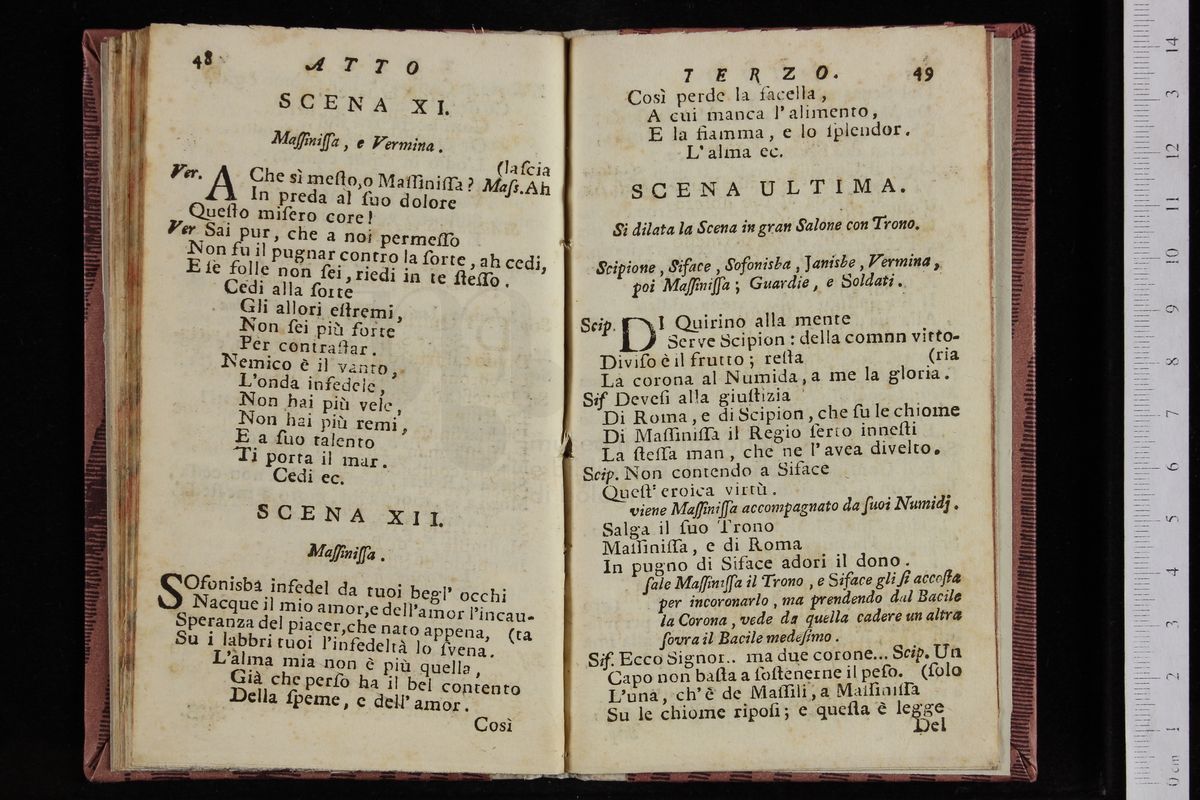 48 ATTO
SCENA XI.
Maſſiniſſa, e Vermina.
(laſcia
Ver. A Che sì meſto,o Maſſiniſſa? Maſs.Ah
In preda al ſuo dolore
Queſto miſero core!
Ver Sai pur, che a noi permeſſo
Non fu il pugnar contro la ſorte, ah cedi,
E ſe folle non ſei, riedi in te ſteſſo.
Cedi alla ſorte
Gli allori eſtremi,
Non ſei più forte
Per contraſtar.
Nemico è il vanto,
L'onda infedele,
Non hai più vele,
Non hai più remi,
E a ſuo talento
Ti porta il mar.
Cedi ec.
SCENA XII.
Maſſiniſſa.
SOfonisba infedel da tuoi begl' occhi
Nacque il mio amor,e dell'amor l'incau-
Speranza del piacer,che nato appena, (ta
Su i labbri tuoi l'infedeltà lo ſvena.
L'alma mia non è più quella,
Già che perſo ha il bel contento
Della ſpeme, e dell' amor.
Così
TERZO. 49
Così perde la facella,
A cui manca l'alimento,
E la fiamma, e lo ſplendor.
L'alma ec.
SCENA ULTIMA.
Si dilata la Scena in gran Salone con Trono.
Scipione, Siface, Sofonisba, Janisbe, Vermina,
poi Maſſiniſſa; Guardie, e Soldati.
Scip. DI Quirino alla mente
Serve Scipion: della comnn vitto-
Diviſo è il frutto; reſta (ria
La corona al Numida, a me la gloria.
Sif Deveſi alla giuſtizia
Di Roma, e di Scipion, che ſu le chiome
Di Maſſiniſſa il Regio ſerto inneſti
La ſteſſa man, che ne l'avea divelto.
Scip. Non contendo a Siface
Queſt' eroica virtù.
viene Maſſiniſſa accompagnato da ſuoi Numidj.
Salga il ſuo Trono
Maſſiniſſa, e di Roma
In pugno di Siface adori il dono.
ſale Maſſiniſſa il Trono, e Siface gli ſi accoſta
per incoronarlo, ma prendendo dal Bacile
la Corona, vede da quella cadere un altra
ſovra il Bacile medeſimo.
Sif. Ecco Signor.. ma due corone... Scip. Un
Capo non baſta a ſoſtenerne il peſo. (ſolo
L'una, ch'è de Maſſili, a Maſſiniſſa
Su le chiome ripoſi; e queſta è legge
Del
0 cm 1 2 3 4 5 6 7 8 9 10 11 12 13 14